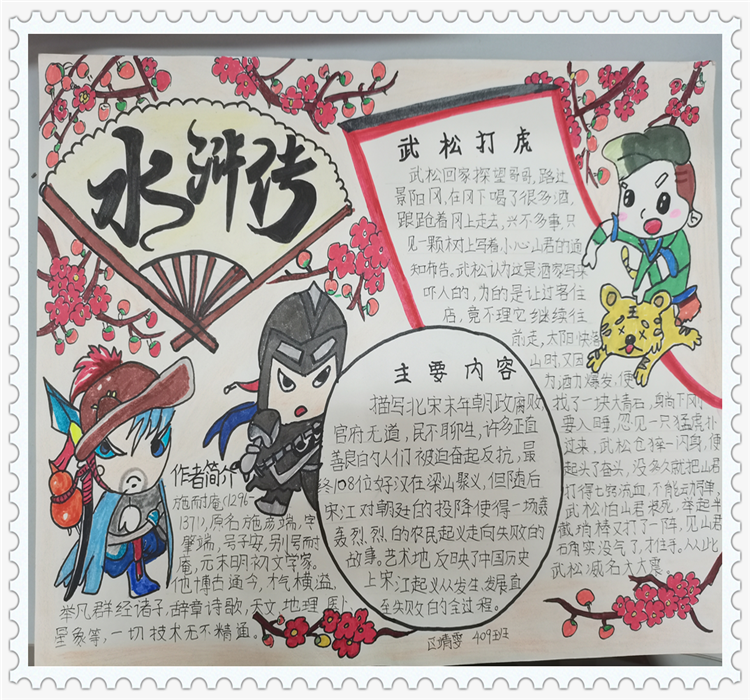 水浒传
武松打虎
武松回家探望哥哥,路过
景阳冈,在冈下喝了很多酒,
踉跄着冈上走去,兴不多事,只
见一颗树上写着,小心山君的通
知布告。武松认为这是酒家写来
吓人的,为的是让过客住
店,竟不理它继续往
前走,太阳快落
山时,又因
为酒力爆发,便
找了一块大青石,身躺下刚
要入睡,忽见一只猛虎扑
过来,武松仓猝一闪身,使
起头了奋头,没多久就把山君
打得七窍流血,不能动弹。
武松怕山君装死,举起半
截哨棒又打了一阵,见山君
确实没气了,才住手。从此
武松威名大大震。
主要内容
描写北宋末年朝政腐败,
官府无道,民不聊生,许多正直
善良的人们被迫奋起反抗,最
终108位好汉在梁山聚义,但随后
宋江对朝廷的投降使得一场轰
轰烈.烈.的农民起义走向失败的
故事。艺术地反映了中国历史
上宋江起义从发生、发展直
至失败的全过程。
作者简介
施耐庵(1296-
1371),原名施彦端,字
肇端,号子安,别号耐
庵,元末明初文学家。
他博古通今,才气横溢
举凡群经诸子,辞章诗歌,天文.地理.医卜
星象等,一切技术无不精通。
409班班